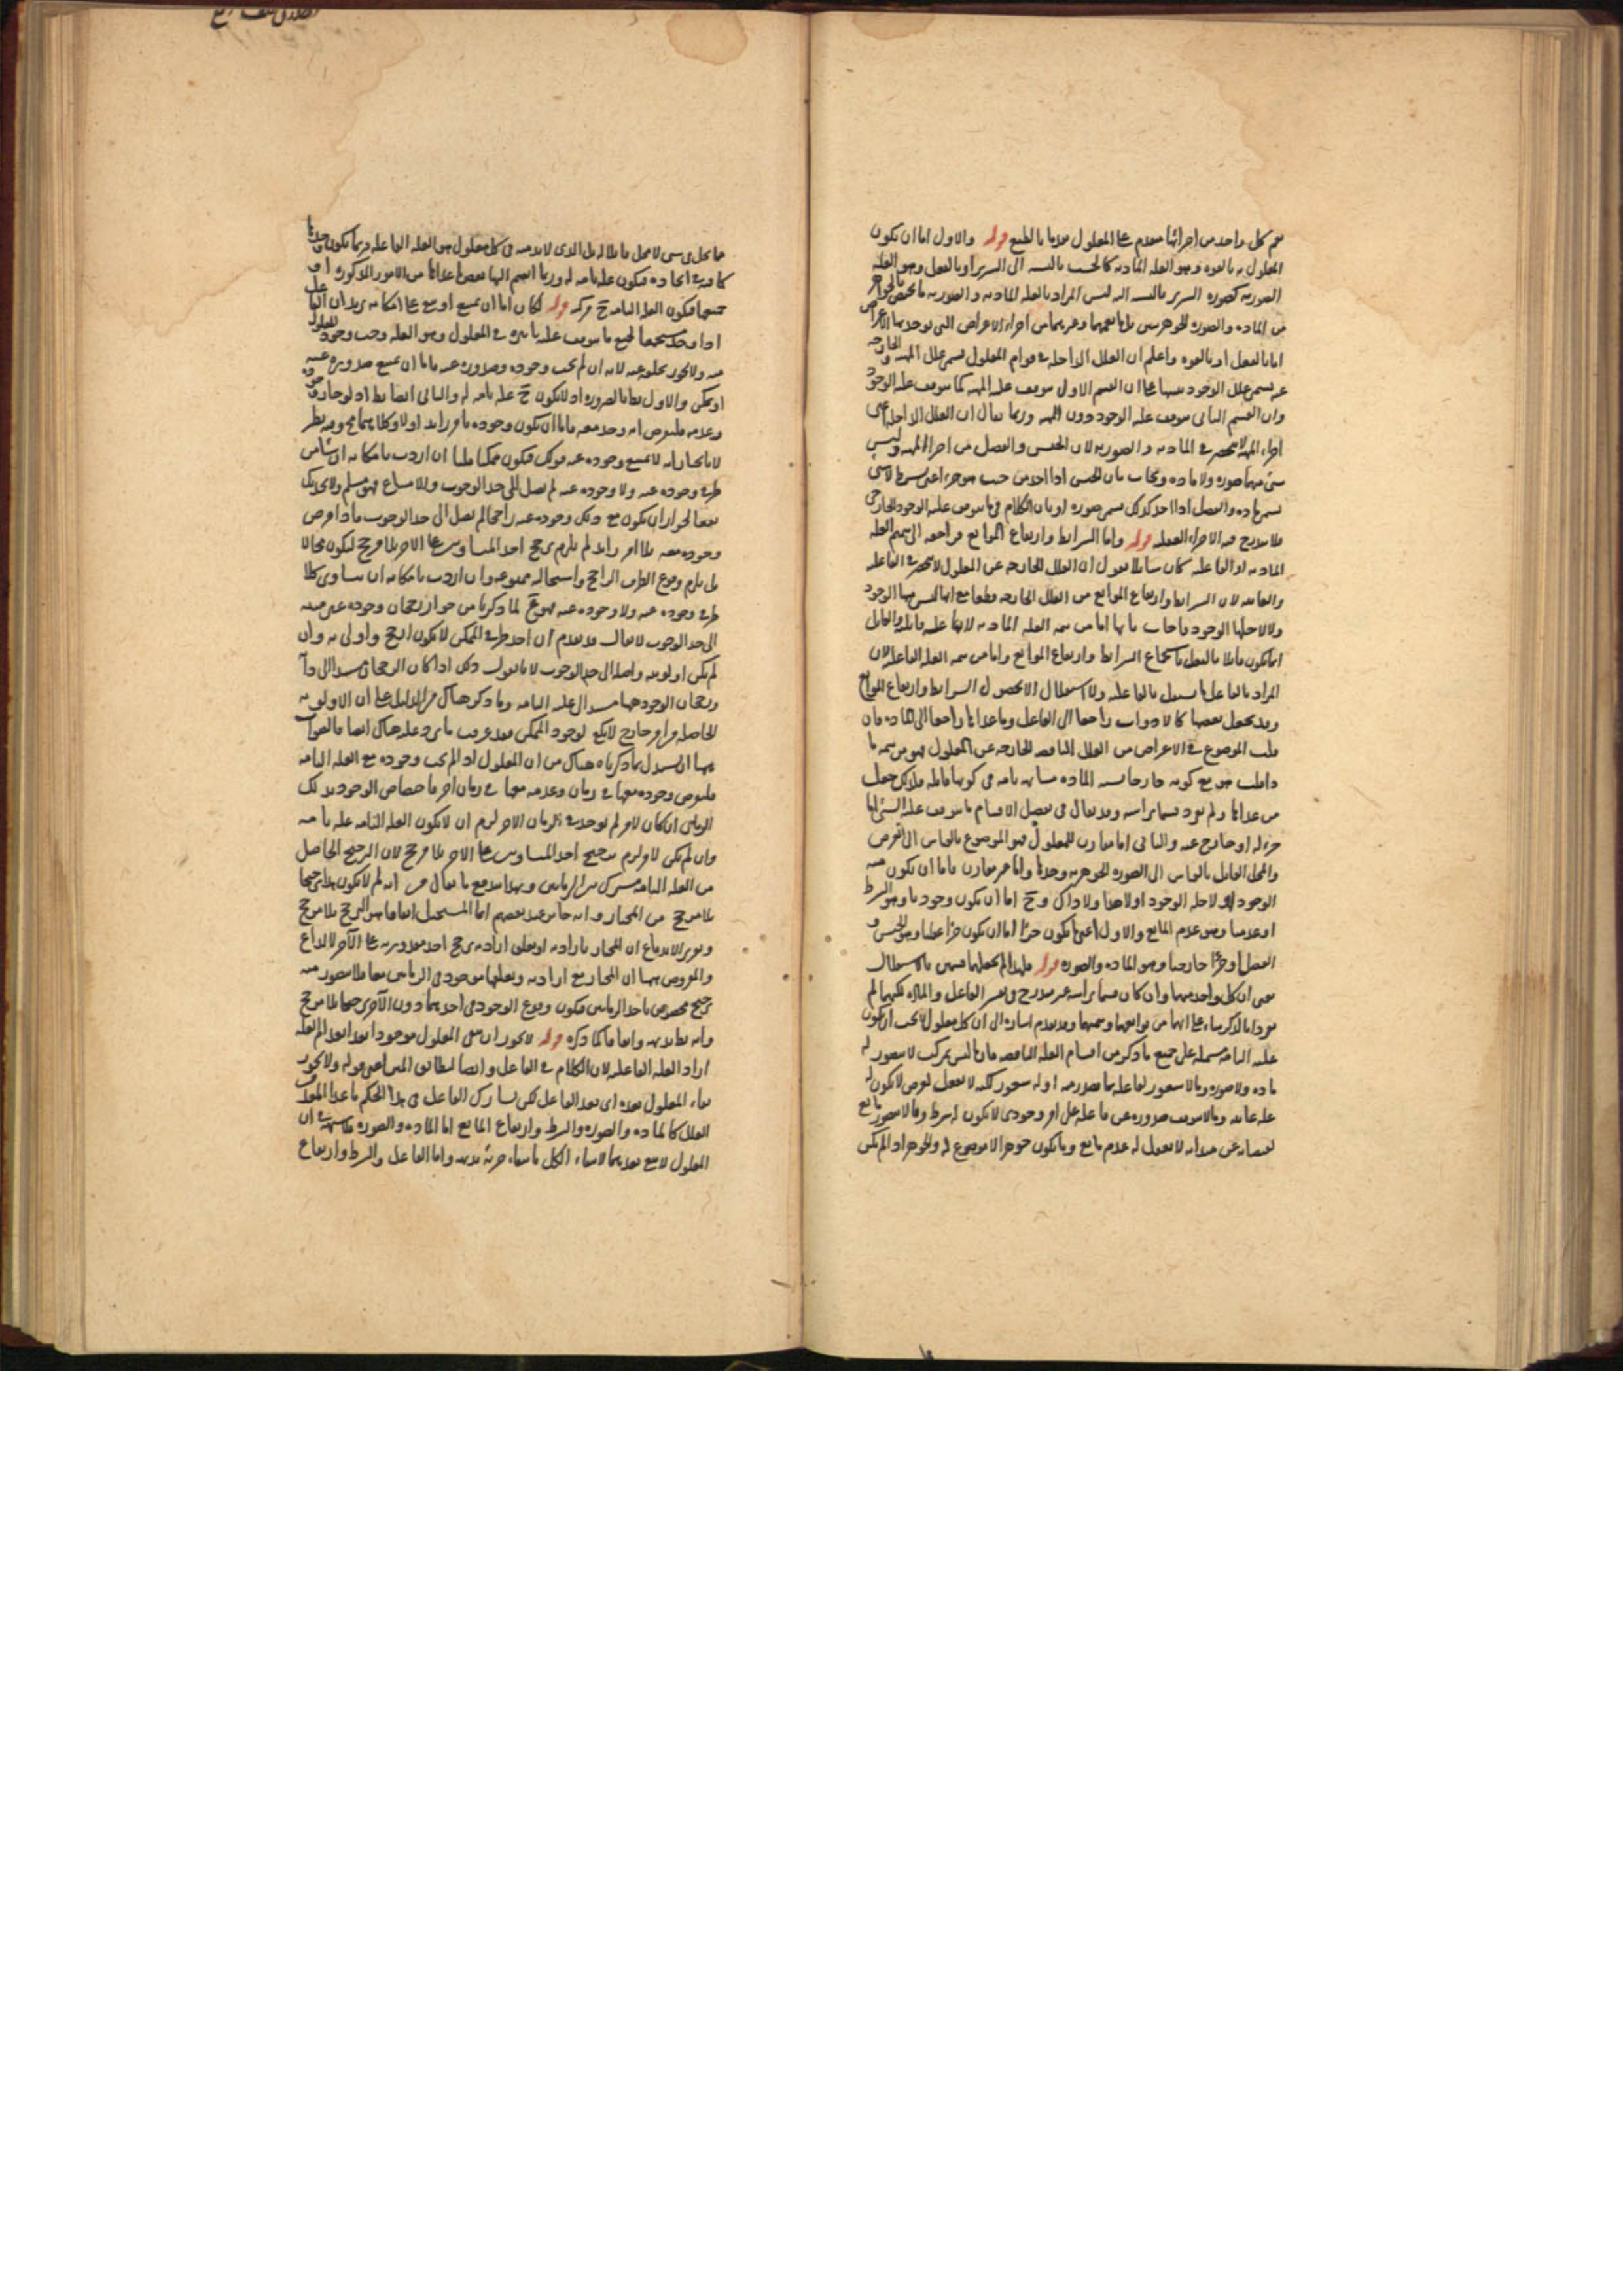 نعم كل واحد من اجزائها متقدم على المعلول تقدما بالطبع قوله والاول اما ان يكون
المعلول به بالقوه وهو العله الماديه كالخشب بالنسبه الى السرير او بالفعل وهو العله
الصوريه كصوره السرير بالنسبه اليه ليس المراد بالعله الماديه والصوريه ما يختص بالجواهر
من الماده والصوره الجوهريتين بل ما يعمهما وغيرهما من اجزاء الاعراض التي يوجد بها الاعراض
اما بالفعل او بالقوه واعلم ان العلل الداخله في قوام المعلول تسمى علل المهيه والخارجه
عنه تسمى علل الوجود تنبيها على ان القسم الاول يتوقف عليه المهيه كما يتوقف عليه الوجود
وان القسم الثاني يتوقف عليه الوجود دون المهيه وربما يقال ان العلل الداخله اعني
اجزاء المهيه لا تنحصر في الماديه والصوريه لان الجنس والفصل من اجزاء المهيه وليس
شيء منهما صوره ولا ماده ويجاب بان الجنس اذا اخذ من حيث هو جزء اعني بشرط لا شيء
يسمى ماده والفصل اذا اخذ كذلك يسمى صوره او بان الكلام فيما يتوقف عليه الوجود الخارجي
فلا يندرج فيه الاجزاء العقليه قوله واما الشرائط وارتفاع الموانع فراجعه الى تتميم العله
الماديه او الفاعليه كان سائلا يقول ان العلل الخارجه عن المعلول لا تنحصر في الفاعليه
والغائيه لان الشرائط وارتفاع الموانع من العلل الخارجه قطعا مع انها ليس منها الوجود
ولا لاجلها الوجود فاجاب بانها اما من تتمه العله الماديه لانها عله قابليه والقابل
انما يكون قابلا بالفعل باستجماع الشرائط وارتفاع الموانع واما من تتمه العله الفاعليه لان
المراد بالفاعل ما يستقل بالفاعليه ولا استقلال الا بحصول الشرائط وارتفاع الموانع
وقد يجعل بعضها كالادوات راجعا الى الفاعل وما عداها راجعا الى الماده فان
قلت الموضوع في الاعراض من العلل الناقصه الخارجه عن المعلول فهو من تتمه ماذا
قلت هو مع كونه خارجا يشبه الماده مشابهه تامه في كونها قابله فلذلك جعل
من عدادها ولم يعد قسما براسه وقد يقال في تفصيل الاقسام ما يتوقف عليه الشيء اما
جزء له او خارج عنه والثاني اما مقارن للمعلول فهو الموضوع بالقياس الى العرض
والمحل القابل بالقياس الى الصوره الجوهريه وحدها واما غير مقارن فاما ان يكون منه
الوجود او لاجله الوجود او لا هذا ولا ذاك وح اما ان يكون وجوديا وهو الشرط
او عدميا وهو عدم المانع والاول اعني ما يكون جزءا اما ان يكون جزءا عقليا وهو الجنس و
الفصل او جزءا خارجيا وهو الماده والصوره قوله فلهذا لم يجعلها قسمين بالاستقلال
يعني ان كل واحد منهما وان كان قسما براسه غير مندرج في تفسير الفاعل والماده لكنهما لم
يفردا بالذكر بناء على انهما من توابعهما وتتمتهما وقد تقدم اشاره الى ان كل معلول لا يجب ان يكون
علته التامه مشتمله على جميع ما ذكر من اقسام العله الناقصه فان ما ليس بمركب لا يتصور له
ماده ولا صوره وما لا شعور لفاعله بما يصدر عنه او له شعور لكنه لا يفعل لغرض لا يكون له
عله غائيه وما لا يتوقف صدوره عن فاعله على امر وجودي لا يكون له شرط وما لا يتصور مانع
لفيضانه عن مبدئه لا يعقل له عدم مانع وما يكون جوهرا لا موضوع له والجوهر اذا لم يكن
حالا في شيء لا محل قابلا له بل الذي لا بد منه في كل معلول هو العله الفاعليه فربما يكون وحدها
كافيه في ايجاده فيكون عله تامه له وربما انضم اليها بعض ما عداها من الامور المذكوره او
جميعها فيكون العله التامه ح مركبه قوله لكان اما ان يمتنع او يبقى على امكانه يريد ان الفاعل
اذا وجد مستجمعا لجميع ما يتوقف عليه تاثيره في المعلول وهو العله وجب وجود المعلول
منه ولا يجوز تخلفه عنه لانه ان لم يجب وجوده وصدوره عنه فاما ان يمتنع صدوره عنه
او يمكن والاول بط بالضروره اذ لا يكون ح عله تامه له والثاني ايضا بط اذ لو جاز وجوده
وعدمه فلنفرض انه وجد معه فاما ان يكون وجوده بامر زايد اولا وكلاهما مح وفيه نظر
لانا نختار انه لا يمتنع وجوده عنه فيكون ممكنا قلنا ان اردت بامكانه ان شيئا من
طرفي وجوده عنه ولا وجوده عنه لم يصل الى حد الوجوب والامتناع فهو مسلم ولا يجديك
نفعا لجواز ان يكون مع ذلك وجوده عنه راجحا لم يصل الى حد الوجوب فاذا فرض
وجوده معه بلا امر زايد لم يلزم ترجح احد المتساويين على الاخر بلا مرجح ليكون محالا
بل يلزم وقوع الطرف الراجح واستحالته ممنوعه وان اردت بامكانه ان يتساوى كلا
طرفي وجوده عنه ولا وجوده عنه فهو مم لما ذكرنا من جواز رجحان وجوده غير منته
الى حد الوجوب لا يقال قد تقدم ان احد طرفي الممكن لا يكون ارجح واولى به وان
لم يكن اولويته واصله الى حد الوجوب لانا نقول ذلك اذا كان الرجحان مستندا الى ذاته
ورجحان الوجود ههنا مستند الى علته التامه وما ذكر هناك من الدليل على ان الاولويه
الحاصله من امر خارج لا يكفي لوجود الممكن فقد عرفت ما يرد عليه هناك ايضا فالصواب
ههنا ان يستدل بما ذكرناه هناك من ان المعلول اذا لم يجب وجوده مع العله التامه
فلنفرض وجوده معها في زمان وعدمه معها في زمان اخر فاختصاص الوجود بذلك
الزمان ان كان لامر لم يوجد في الزمان الاخر لزم ان لا يكون العله التامه عله تامه
وان لم يكن لامر لزم ترجيح احد المتساويين على الاخر بلا مرجح لان الترجيح الحاصل
من العله التامه مشترك بين الزمانين وبهذا يندفع ما يقال من انه لم لا يكون هذا ترجيحا
بلا مرجح من المختار وانه جايز عند بعضهم انما المستحيل اتفاقا هو الترجح بلا مرجح
وتقرير الاندفاع ان المختار بارادته او بتعلق ارادته يرجح احد مقدوريه على الاخر لا لداع
والمفروض ههنا ان المختار مع ارادته وتعلقها موجود في الزمانين معا فلا يتصور منه
ترجيح مخصوص باحد الزمانين فيكون وقوع الوجود في احدهما دون الاخر ترجحا بلا مرجح
وانه بط بديهه واتفاقا كما ذكره قوله لا يجوز ان يبقى المعلول موجودا بعد انعدام العله
اراد العله الفاعليه لان الكلام في الفاعل وايضا ليطابق المتن اعني قوله ولا يجوز
بقاء المعلول بعده اي بعد الفاعل لكن يشارك الفاعل في هذا الحكم ما عدا المعد من
العلل كالماده والصوره والشرط وارتفاع المانع اما الماده والصوره فلا شبهه في ان
المعلول لا يبقى بعدهما لانتفاء الكل بانتفاء جزئه بديهه واما الفاعل والشرط وارتفاع